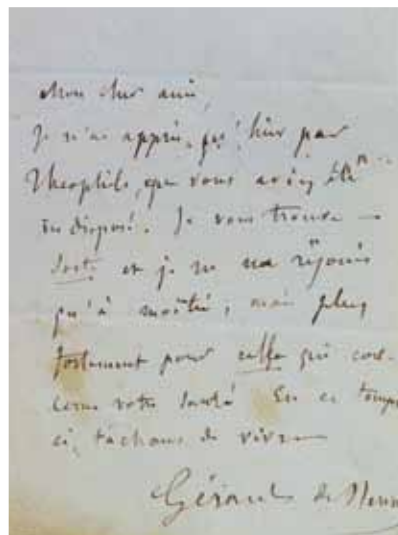 Mon cher ami,
Je n'ai appris, qu'hier par
Théophile, que vous aviez été
indisposé. Je vous trouve
sorti et je ne me réjouis
qu'à moitié, mais plus
fortement pour celle qui con-
cerne votre santé En ce temps
ci, tâchons de vivre
Gérard de Nerv